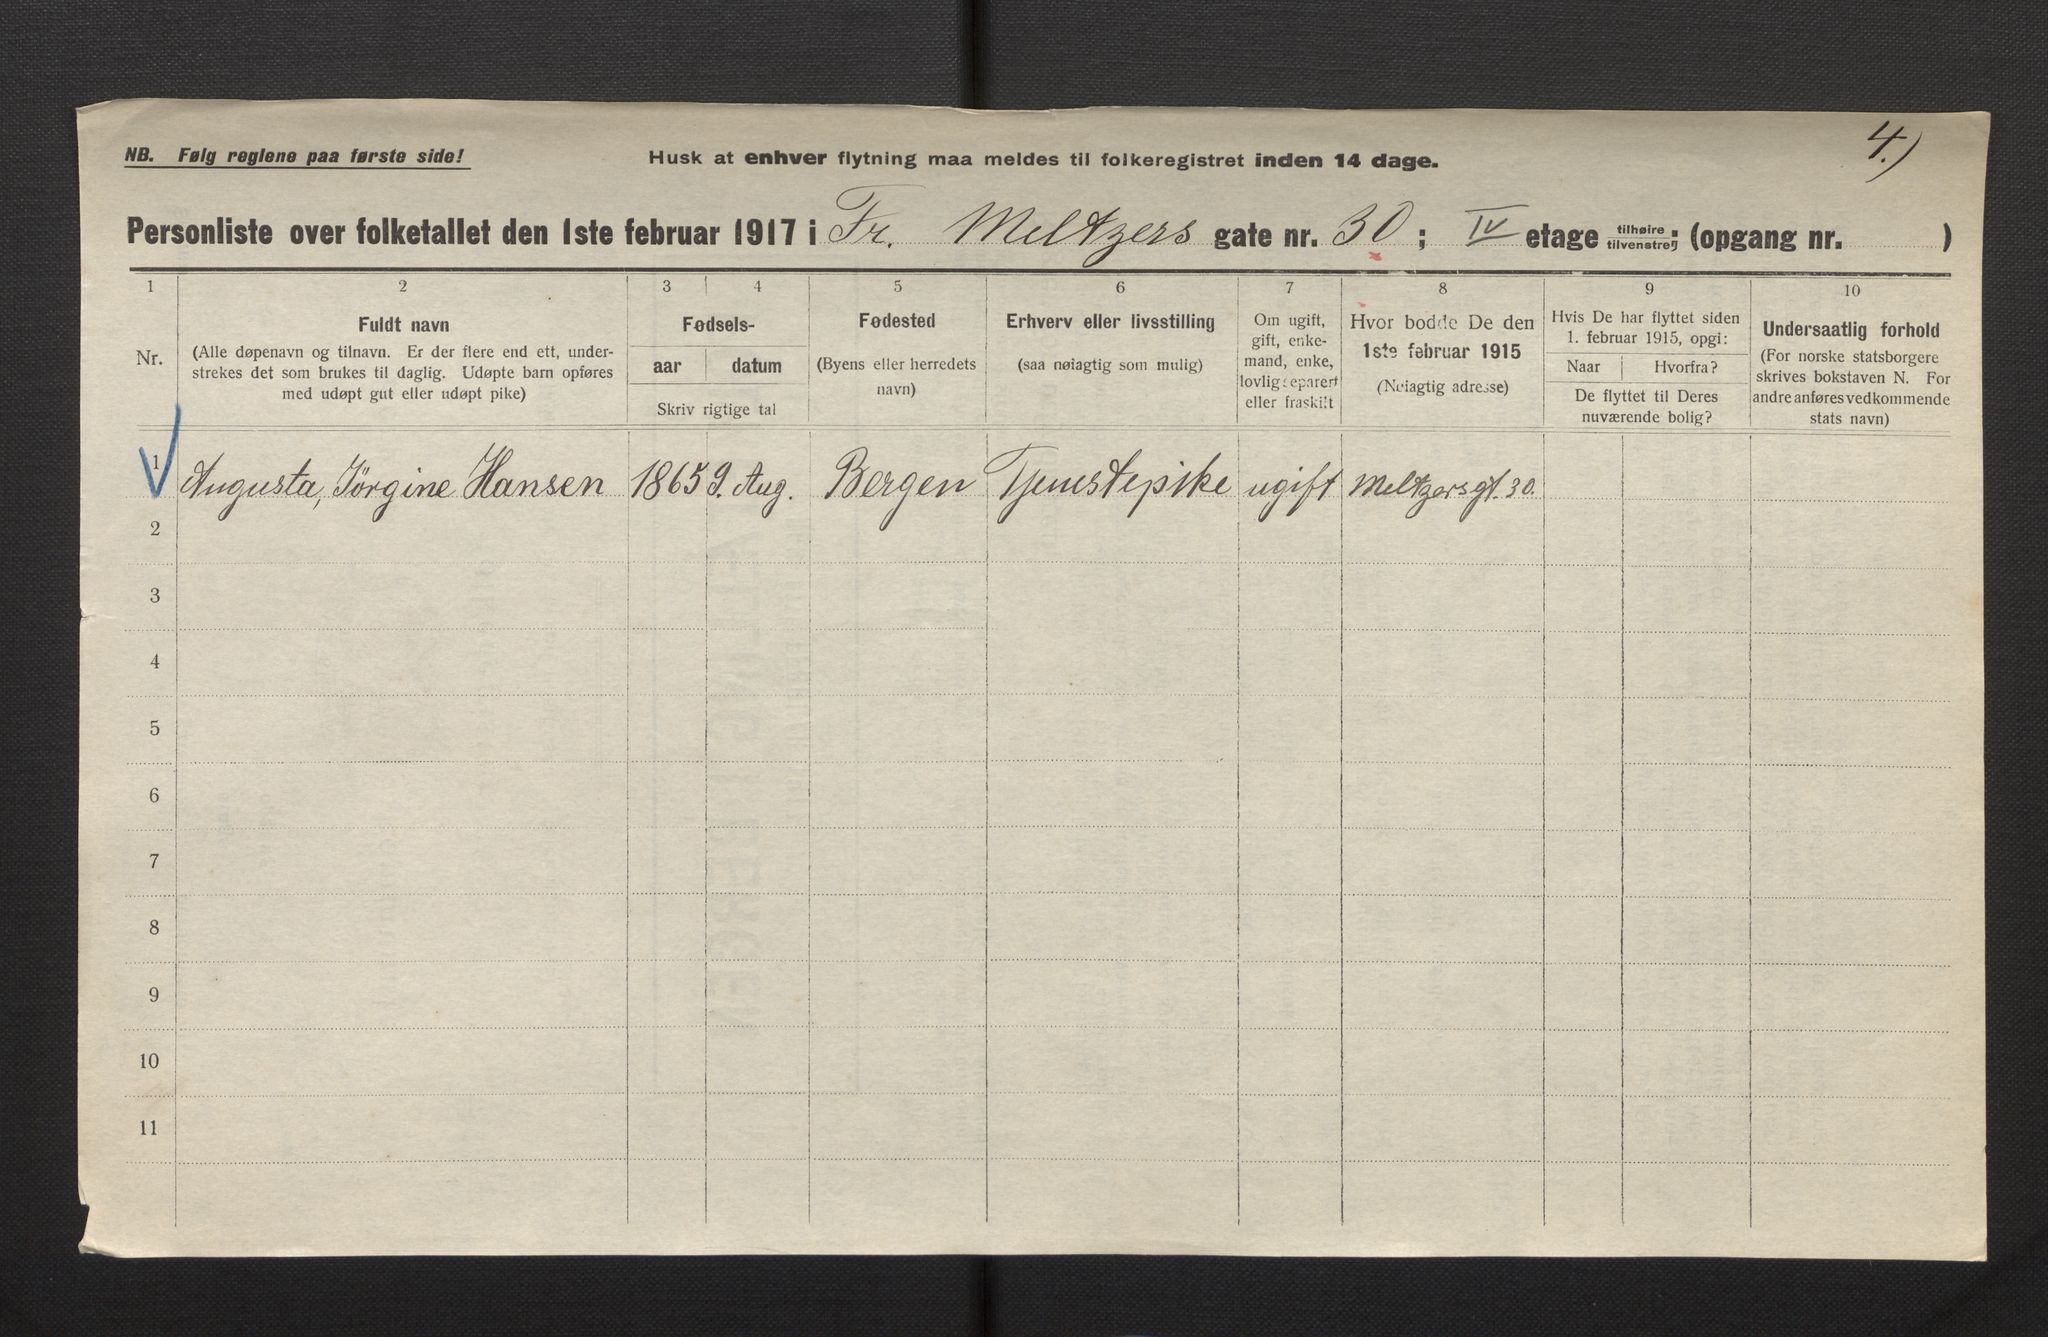 4.)
NB. Følg reglene paa første side!
Husk at enhver flytning maa meldes til folkeregistret inden 14 dage.
Personliste over folketallet den 1ste februar 1917 i Fr. Meltzers gate nr. 30 ; IV etage tilhøire tilvenstre ; (opgang nr. )
1 2 3 4 5 6 7 8 9 10
Nr.
Fuldt navn
(Alle døpenavn og tilnavn. Er der flere end ett, under-
strekes det som brukes til daglig. Udøpte barn opføres
med udøpt gut eller udøpt pike)
Fødsels-
aar datum
Skriv rigtige tal
Fødested
(Byens eller herredets
navn)
Erhverv eller livsstilling
(saa nøiagtig som mulig)
Om ugift,
gift, enke-
mand, enke,
lovlig separert
eller fraskilt
Hvor bodde De den
1ste februar 1915
(Nøiagtig adresse)
Hvis De har flyttet siden
1. februar 1915, opgi:
Naar Hvorfra?
De flyttet til Deres
nuværende bolig?
Undersaatlig forhold
(For norske statsborgere
skrives bokstaven N. For
andre anføres vedkommende
stats navn)
1 Augusta, Jørgine Hansen 1865 9. Aug. Bergen Tjenestepike ugift Meltzersgt. 30.
2
3
4
5
6
7
8
9
10
11